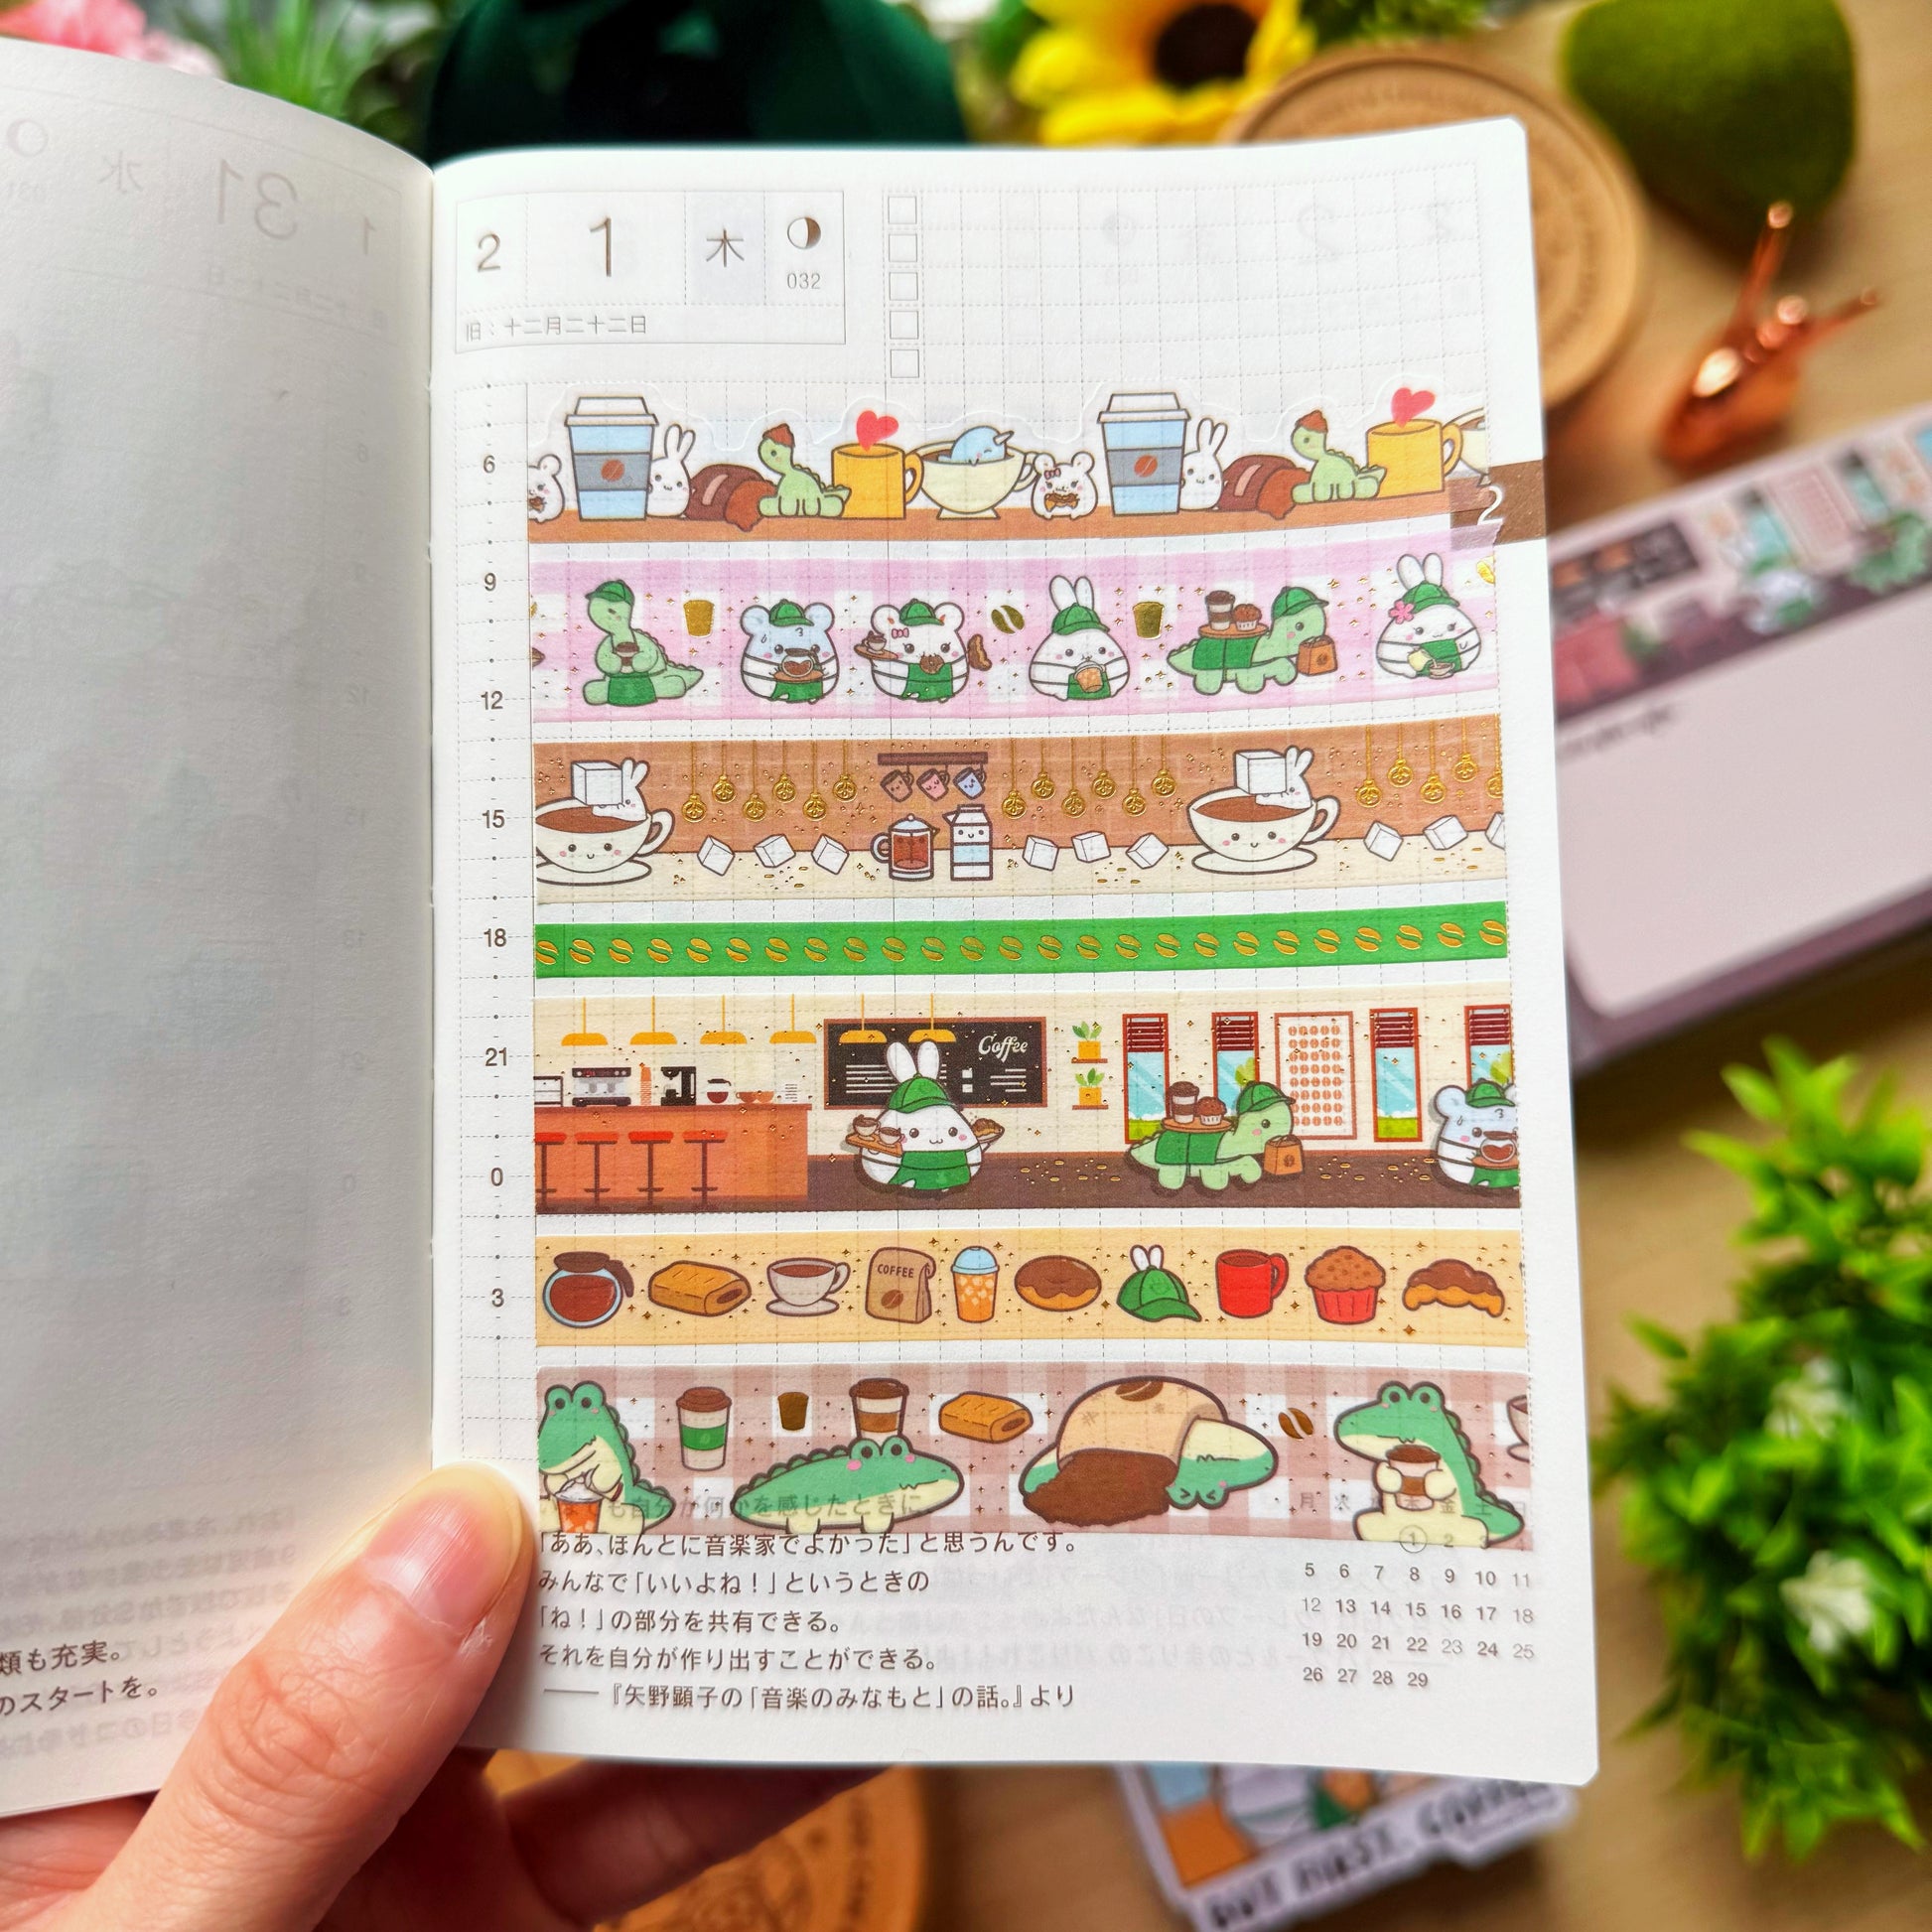 2 1 木 032
旧：十二月二十二日
2
6
9
12
15
18
21
Coffee
0
COFFEE
3
も自分が何かを感じたときに
「ああ、ほんとに音楽家でよかった」と思うんです。
みんなで「いいよね！」というときの
「ね！」の部分を共有できる。
それを自分が作り出すことができる。
――『矢野顕子の「音楽のみなもと」の話。』より
月 木 金 土 日
1 2 3 4
5 6 7 8 9 10 11
12 13 14 15 16 17 18
19 20 21 22 23 24 25
26 27 28 29
類も充実。
のスタートを。
BUT FIRST, COFFEE